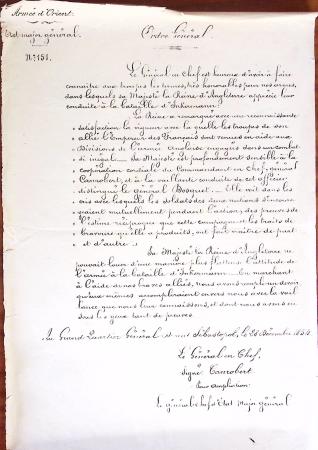 Armée d'Orient.
Etat-major général.
N° 151.
Ordre Général
Le Général en Chef est heureux d'avoir à faire
connaître aux troupes les termes, très honorables pour nos armes,
dans lesquels sa Majesté la Reine d'Angleterre apprécie leur
conduite à la bataille d'Inkermann :
" La Reine a remarqué avec une reconnaissante
" satisfaction la vigueur avec laquelle les troupes de son
" allié l'Empereur des Français sont venues en aide aux
" Divisions de l'armée Anglaise engagées dans un combat
" si inégal. Sa Majesté est profondément sensible à la
" coopération cordiale du Commandant en Chef, général
" Canrobert, et à la vaillante conduite de cet officier
" distingué le général Bosquet. Elle voit dans les
" cris avec lesquels les soldats des deux nations s'encou-
" rageaient mutuellement pendant l'action, des preuves de
" l'estime réciproque que cette campagne et les traits de
" bravoure qu'elle a produits, ont fait naître de part
" et d'autre. "
Sa Majesté la Reine d'Angleterre ne
pouvait louer d'une manière plus flatteuse l'attitude de
l'armée à la bataille d'Inkermann. En marchant
à l'aide de nos braves alliés, nous avons rempli un devoir
qu'eux-mêmes accompliraient envers nous avec la vail-
lance que nous leur connaissons, et dont nous avons eu
sous les yeux tant de preuves.
Au Grand Quartier Général devant Sébastopol, le 26 Décembre 1854.
Le Général en Chef,
Signé Canrobert
Pour ampliation :
Le général Chef d'Etat Major général